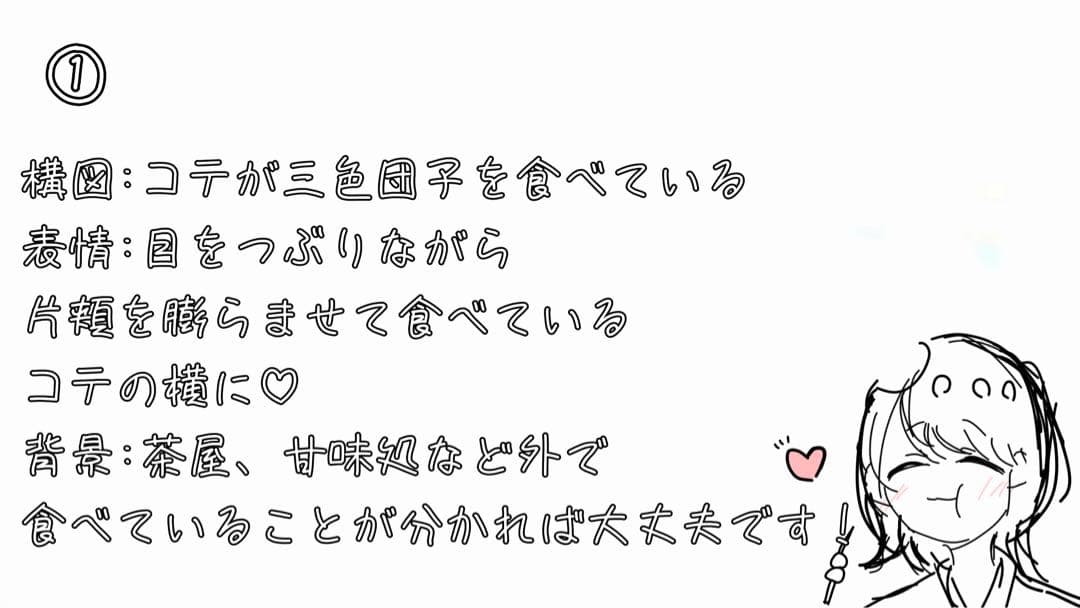 ①
構図:コテが三色団子を食べている
表情:目をつぶりながら
片頬を膨らませて食べている
コテの横に♡
背景:茶屋、甘味処など外で
食べていることが分かれば大丈夫です!